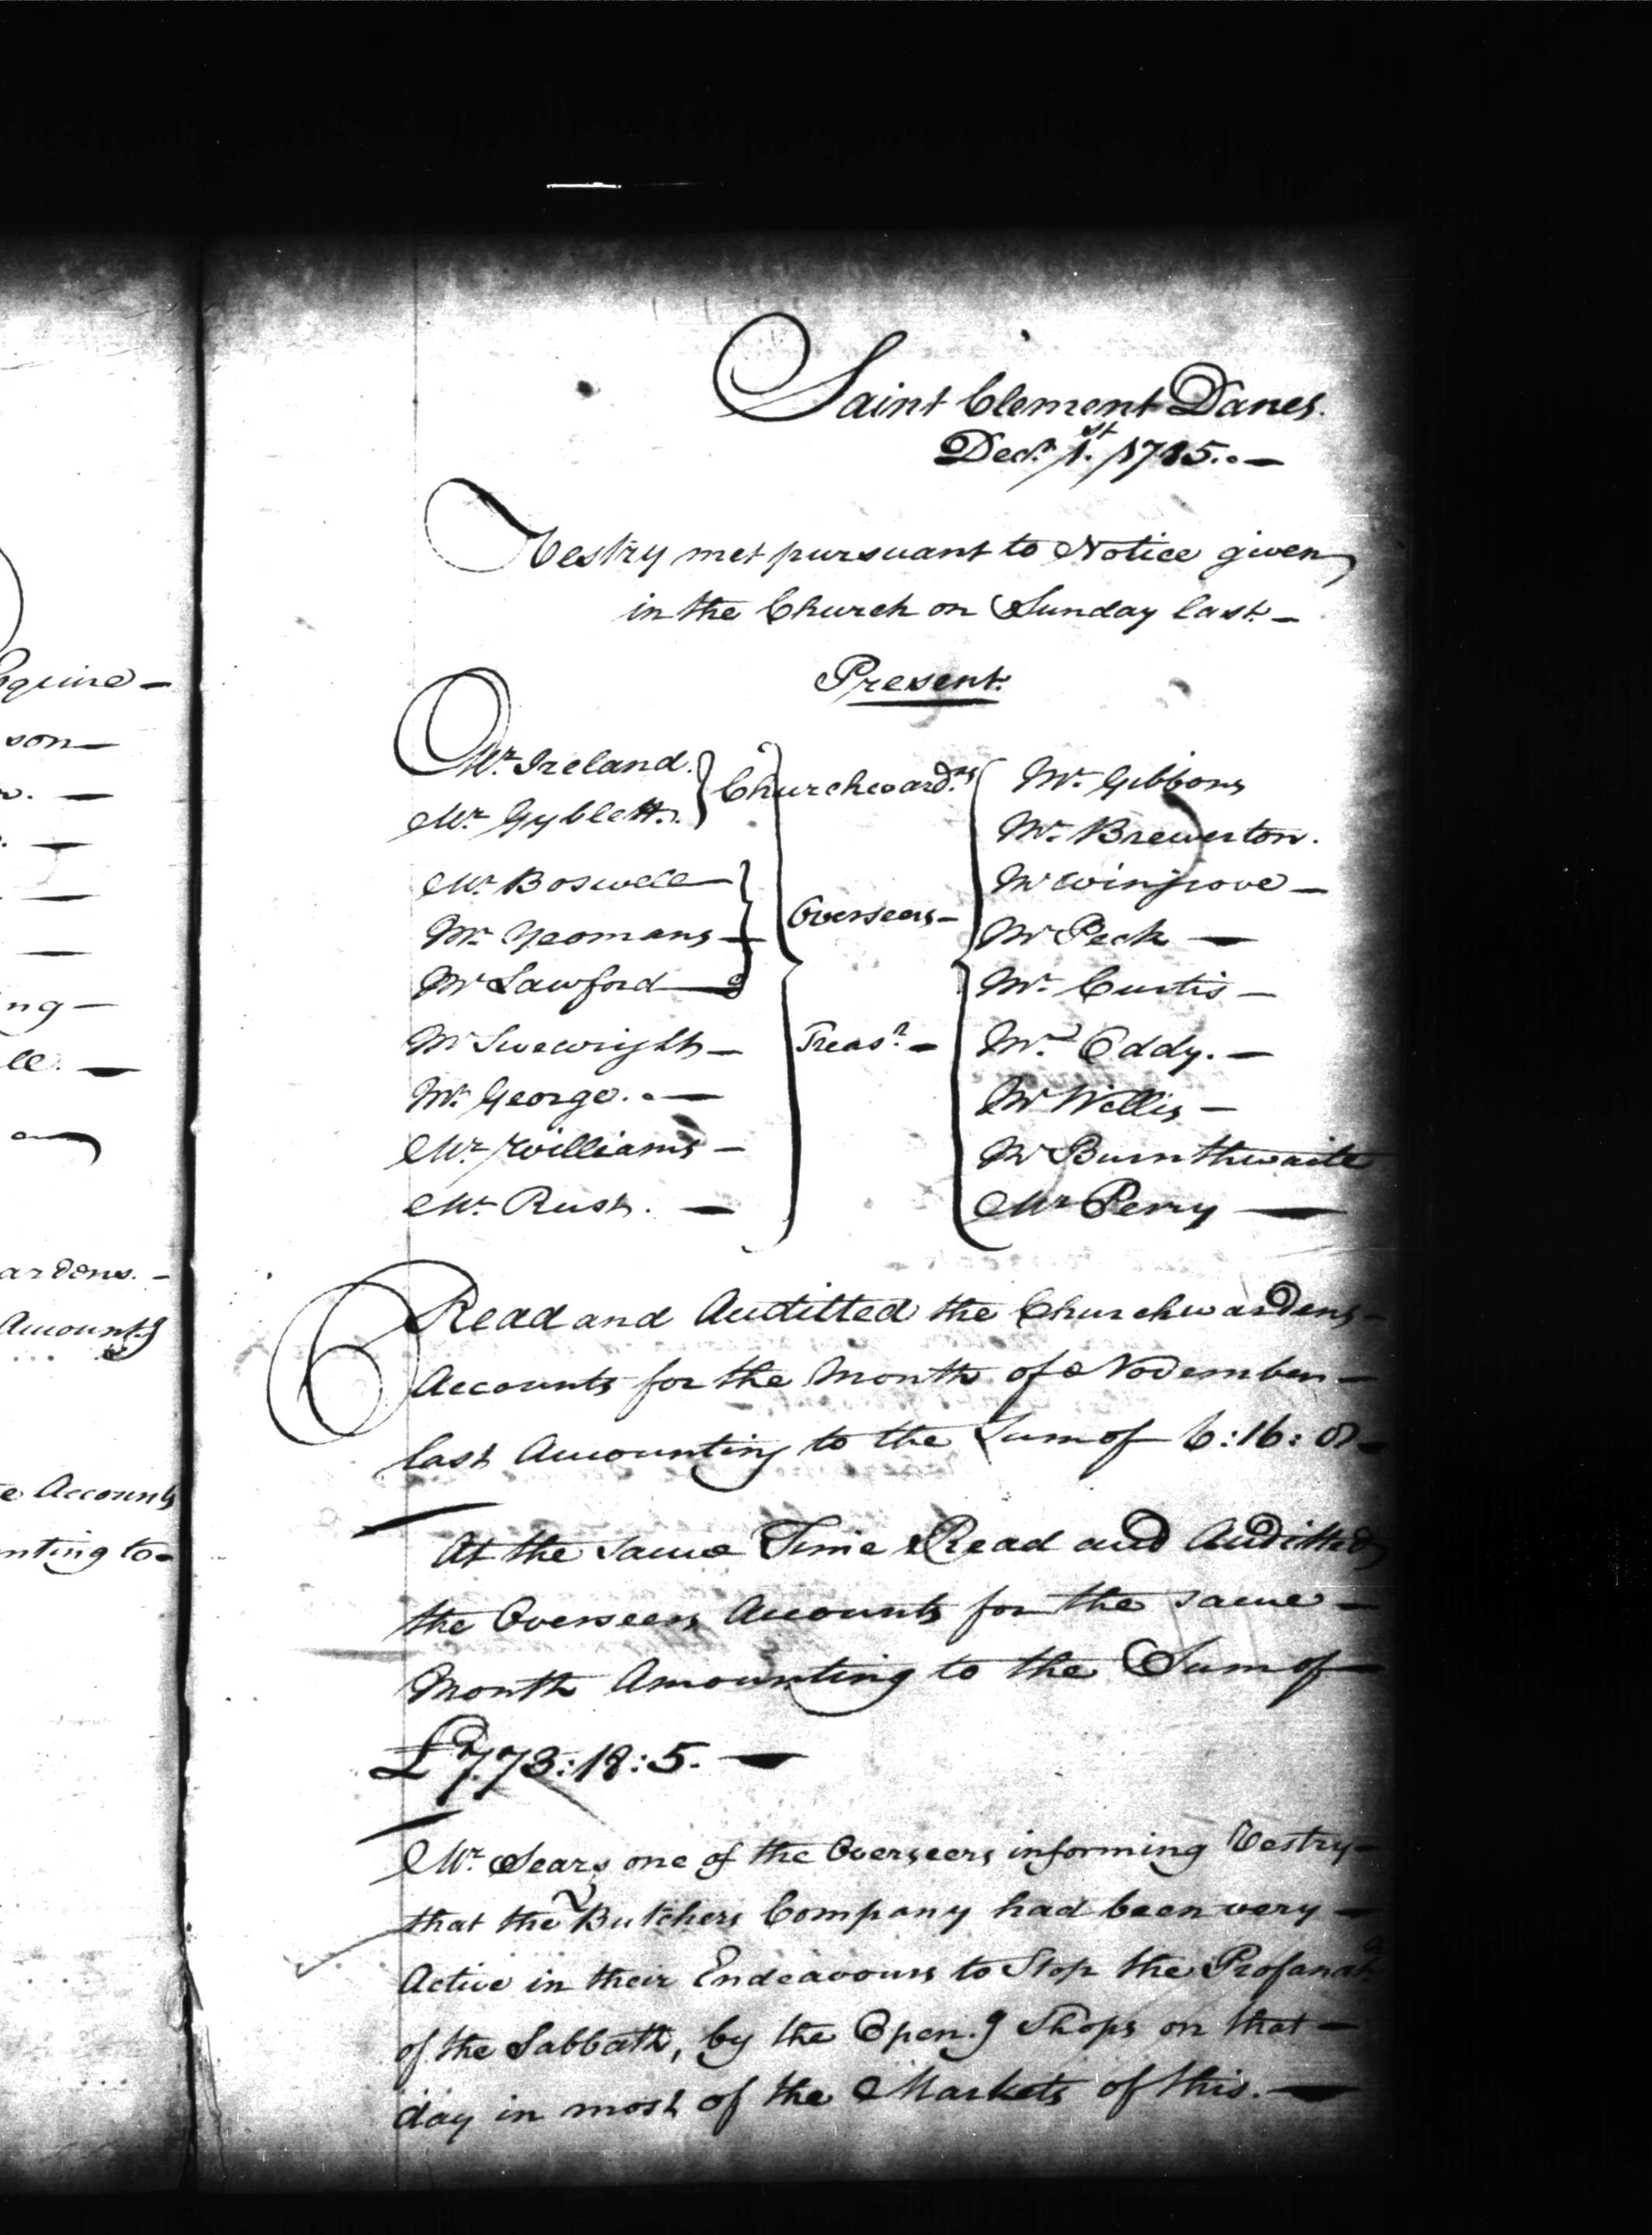 Equire —
son —
ng —
le. —
ardens. —
Amounts
e Accounts
nting to —
Saint Clement Danes.
Decr. 1st. 1785. —
Vestry met pursuant to Notice given
in the Church on Sunday last. —
Present.
Mr. Ireland. } Churchwardns
Mr. Gyblett. }
Mr. Boswell —
Mr. Yeomans — } Overseers —
Mr Lawford —
Mr Sivewright — Treasr. —
Mr. George. —
Mr. Williams —
Mr. Rush. —
Mr. Gibbons
Mr. Brewerton.
Mr Wingrove —
Mr Peck —
Mr. Curtis —
Mr. Eddy. —
Mr Willis —
Mr Burnthwaite
Mr Perry —
Read and Auditted the Churchwardens —
Accounts for the Month of November —
last Amounting to the Sum of 6:16:8 —
At the same Time Read and Auditted
the Overseers Accounts for the same —
Month Amounting to the Sum of
£773:18:5. —
Mr. Sears one of the Overseers informing Vestry —
that the Butchers Company had been very —
Active in their Endeavours to Stop the Profanatn.
of the Sabbath, by the Open.g Shops on that —
day in most of the Markets of this. —